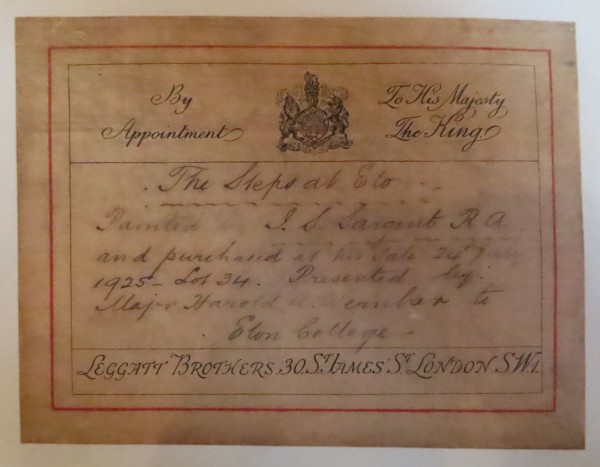 By
Appointment
To His Majesty
The King
The Steps at Eton
Painted by J. S. Sargent R A
and purchased at his Sale 24 July
1925 - Lot 34. Presented by:
Major Harold to
Eton College -
LEGGATT BROTHERS. 30. ST JAMES' ST LONDON SW1.